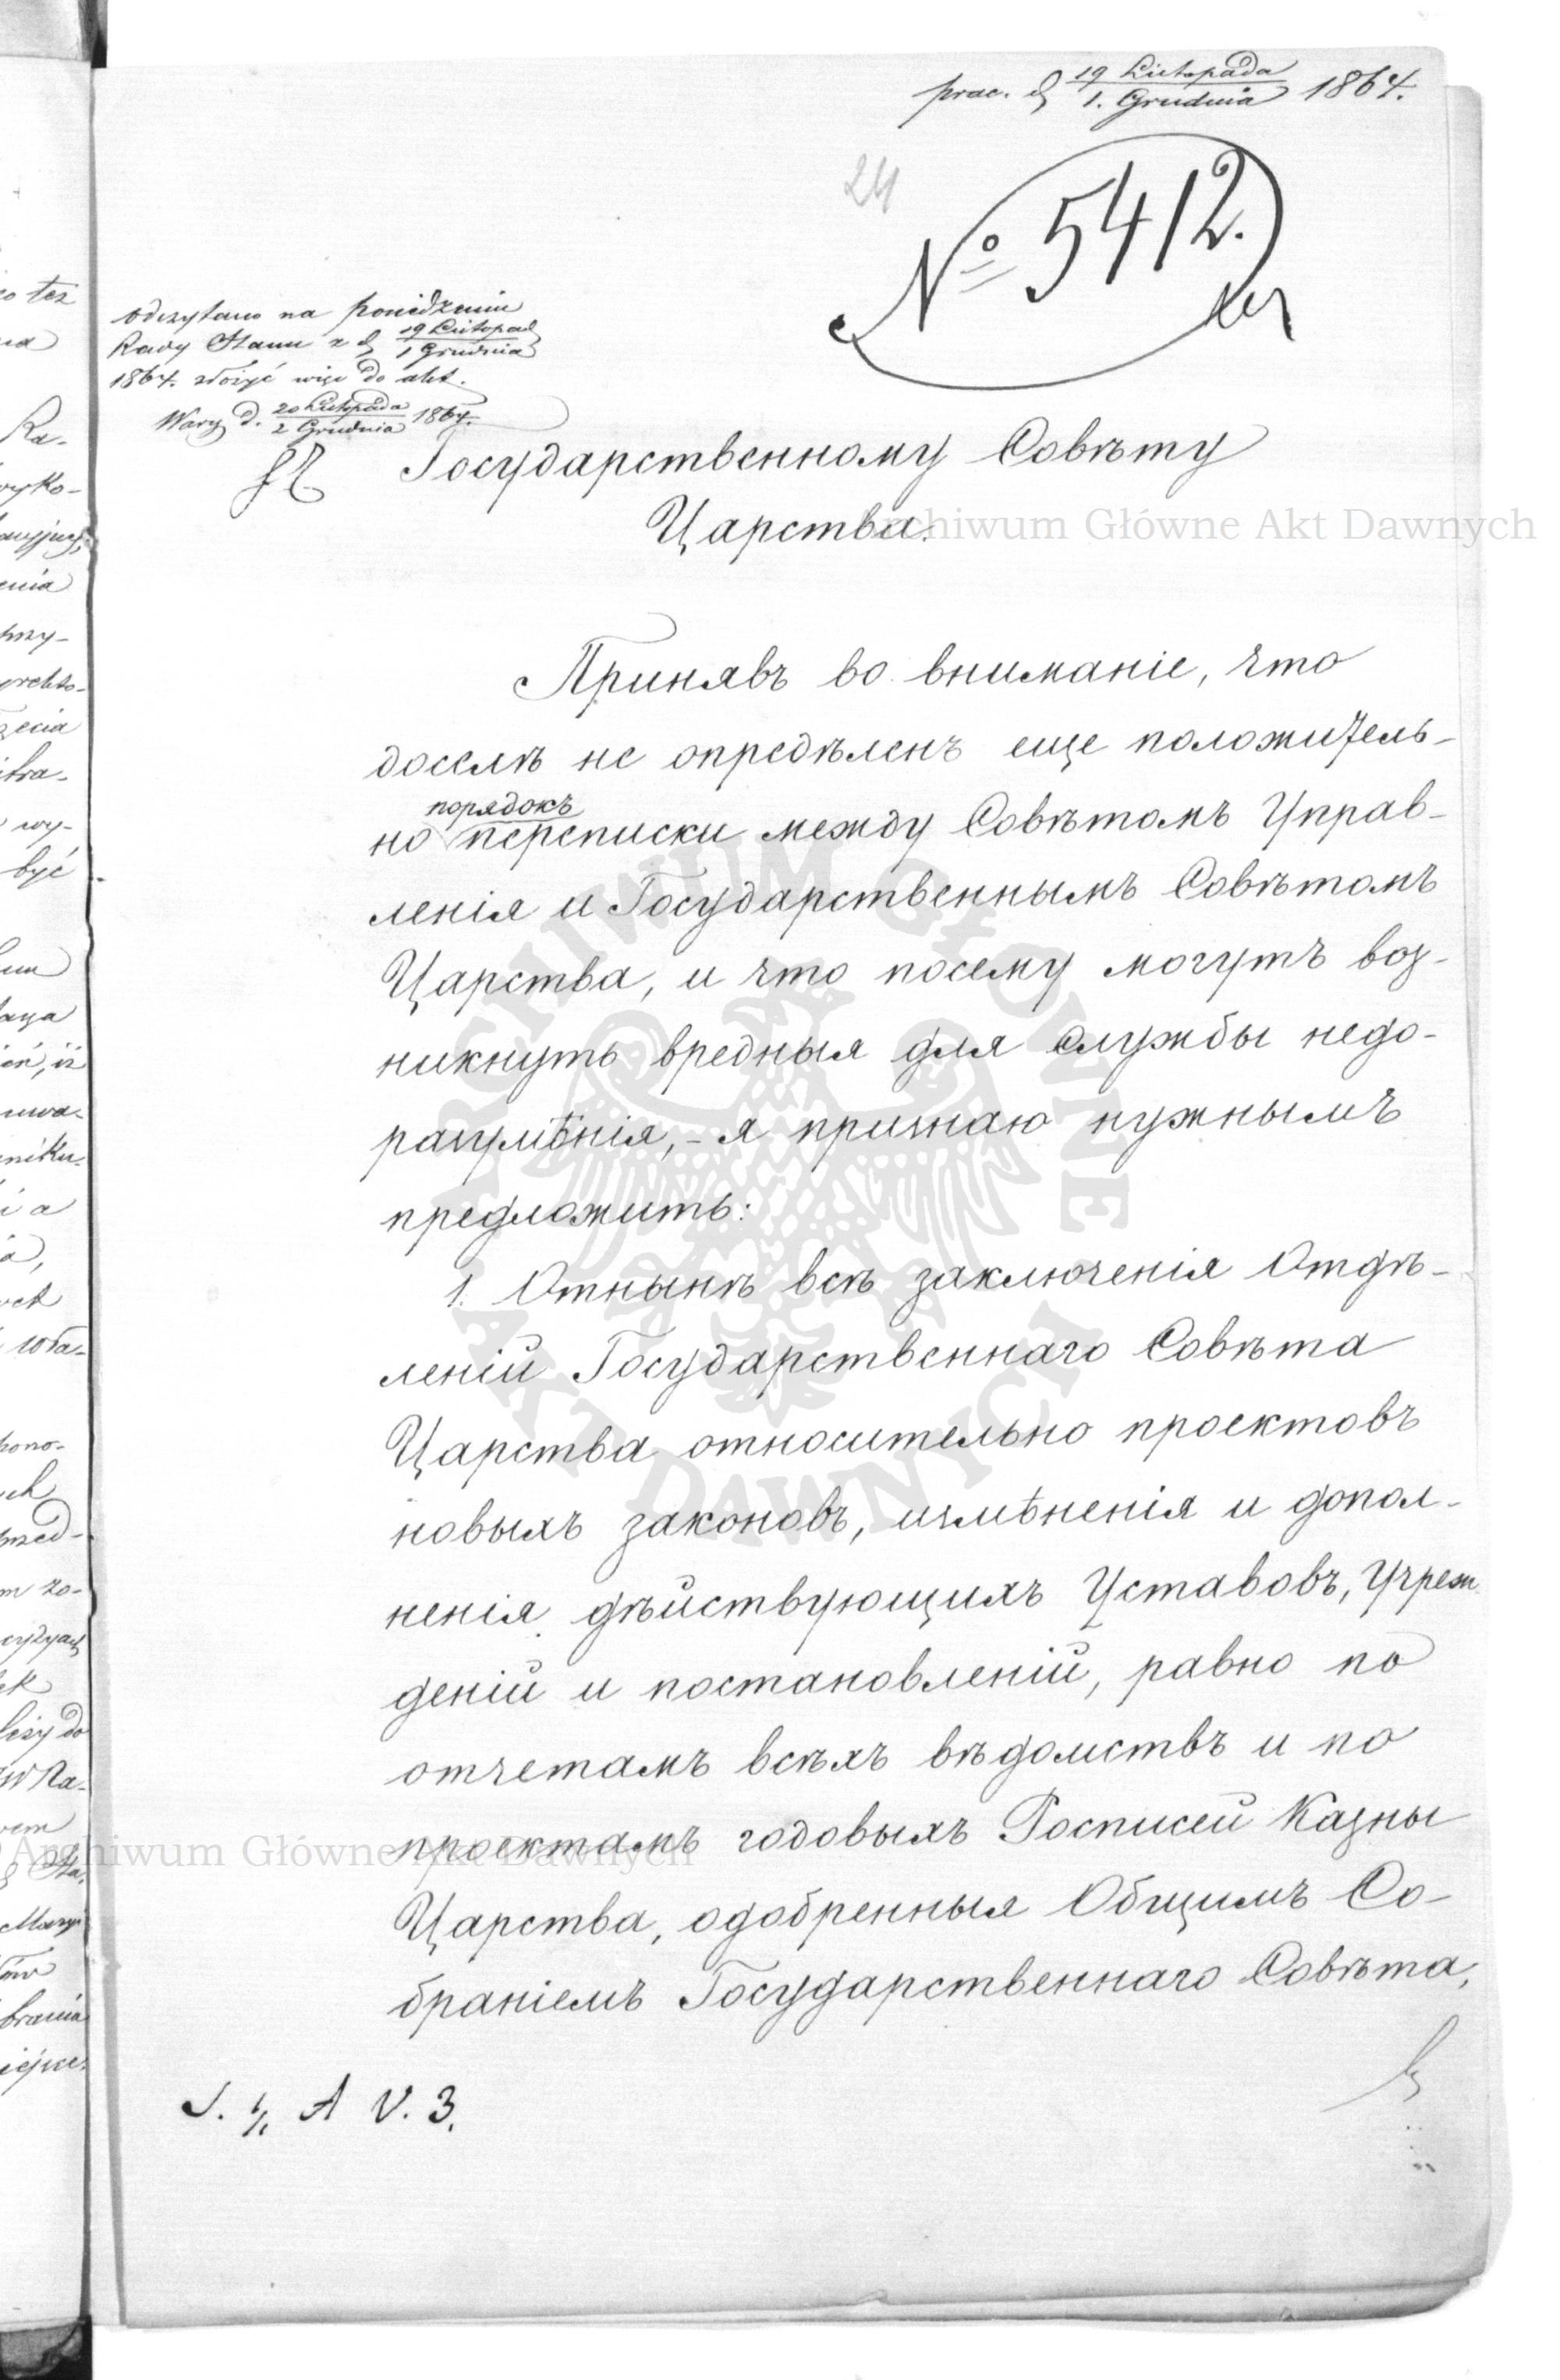 prac. d 19 Listopada
1. Grudnia 1864.
24
№ 5412.
odczytano na posiedzeniu
Rady Stanu z d 19 Listopad
1 Grudnia
1864. złożyć więc do akt.
Warsz d. 20 Listopada
2 Grudnia 1864.
Государственному Совѣту
Царства.
Archiwum Główne Akt Dawnych
Принявъ во вниманіе, что
доселѣ не опредѣленъ еще положитель-
порядокъ
но переписки между Совѣтомъ Управ-
ленія и Государственнымъ Совѣтомъ
Царства, и что посему могутъ воз-
никнуть вредныя для службы недо-
разумѣнія, - я признаю нужнымъ
предложить:
1. Отнынѣ всѣ заключенія Отдѣ-
леній Государственнаго Совѣта
Царства относительно проектовъ
новыхъ законовъ, измѣненія и допол-
ненія дѣйствующихъ Уставовъ, Учреж
деній и постановленій, равно по
отчетамъ всѣхъ вѣдомствъ и по
проектамъ годовыхъ Росписей Казны
Archiwum Główne Akt Dawnych
Царства, одобренныя Общимъ Со-
браніемъ Государственнаго Совѣта,
S. 1/1 A V. 3.